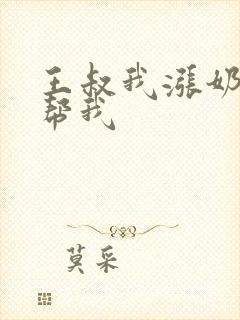 王叔我漲奶
帮我
莫采